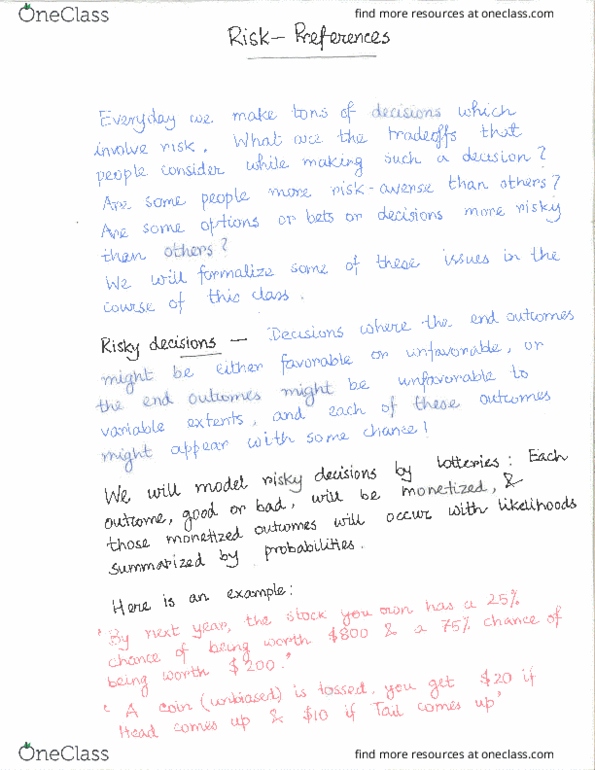 OneClass
find more resources at oneclass.com
Risk- Preferences
Everyday we make tons of decisions which
involve risk. What are the tradeoffs that
people consider while making such a decision?
Are some people more risk-averse than others?
Are some options or bets or decisions more risky
than others?
We will formalize some of these issues in the
course of this class.
Risky decisions — Decisions where the end outcomes
might be either favorable or unfavorable, or
the end outcomes might be unfavorable to
variable extents, and each of these outcomes
might appear with some chance!
We will model risky decisions by lotteries: Each
outcome, good or bad, will be monetized, &
those monetized outcomes will occur with likelihoods
summarized by probabilities.
Here is an example:
'By next year, the stock you own has a 25%
chance of being worth $800 & a 75% chance of
being worth $200.'
'A coin (unbiased) is tossed. you get $20 if
Head comes up & $10 if Tail comes up'
OneClass
find more resources at oneclass.com